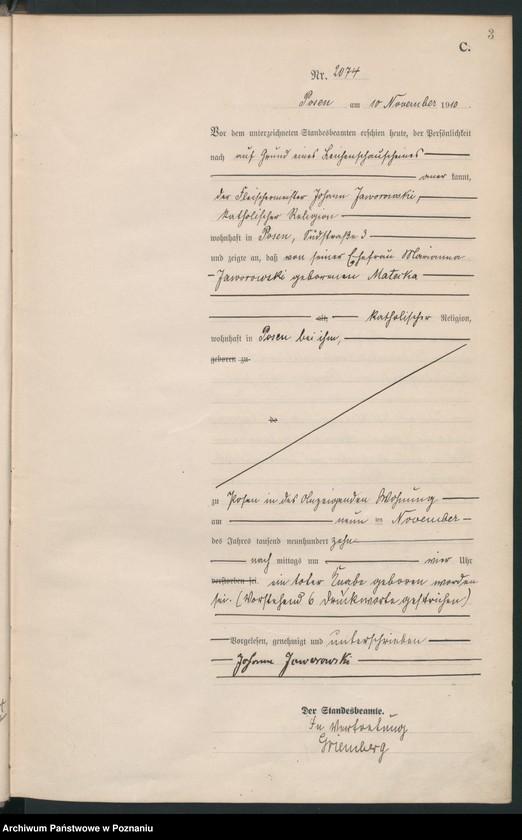 3
C.
Nr. 2074
Posen am 10 November 1910.
Vor dem unterzeichneten Standesbeamten erschien heute, der Persönlichkeit
nach auf Grund eines Leichenschauscheines
aner kannt,
der Fleischermeister Johann Jaworowski,
katholischer Religion
wohnhaft in Posen, Südstraße 3
und zeigte an, daß von seiner Ehefrau Marianna
Jaworowski geborenen
alt, katholischer Religion,
wohnhaft in Posen bei ihm,
geboren zu
zu Posen in des Anzeigenden Wohnung
am neun ten November
des Jahres tausend neunhundert zehn
nach mittags um vier Uhr
verstorben sei. ein toter Knabe geboren worden
sei. (Vorstehend 6 Druckworte gestrichen)
Vorgelesen, genehmigt und unterschrieben
Johann Jaworowski
Der Standesbeamte.
In Vertretung
Archiwum Państwowe w Poznaniu